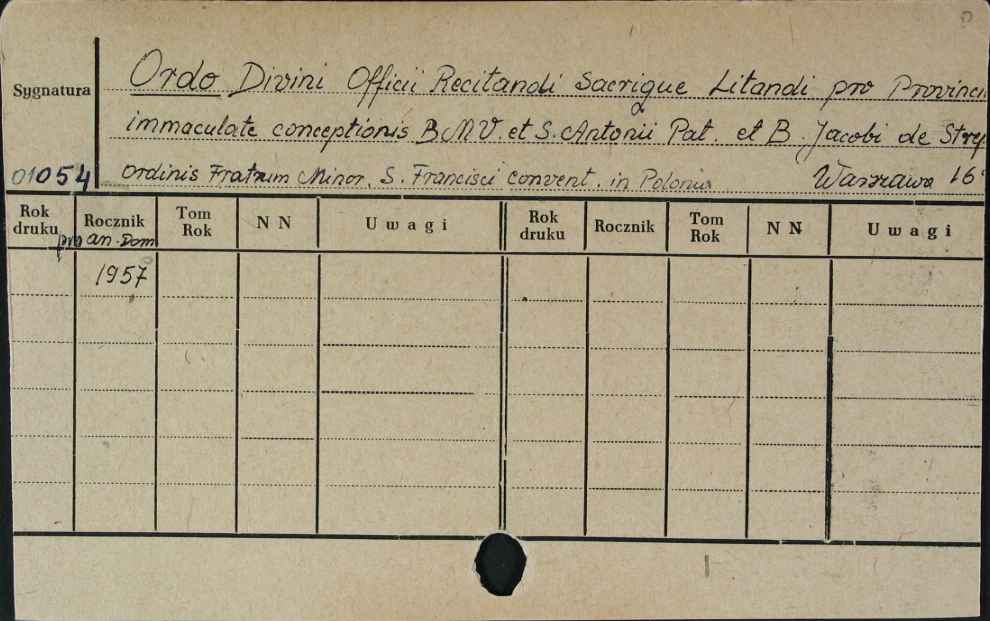 Sygnatura
Ordo Divini Officii Recitandi Sacrique Litandi pro
immaculate conceptionis B.M.V. et S. Antonii Pat. et B. Jacobi de
01054
ordinis Fratrum Minor. S. Francisci convent. in Polonia Warszawa
Rok druku Rocznik Tom Rok N N Uwagi Rok druku Rocznik Tom Rok N N Uwagi
pro an. Dom
1957